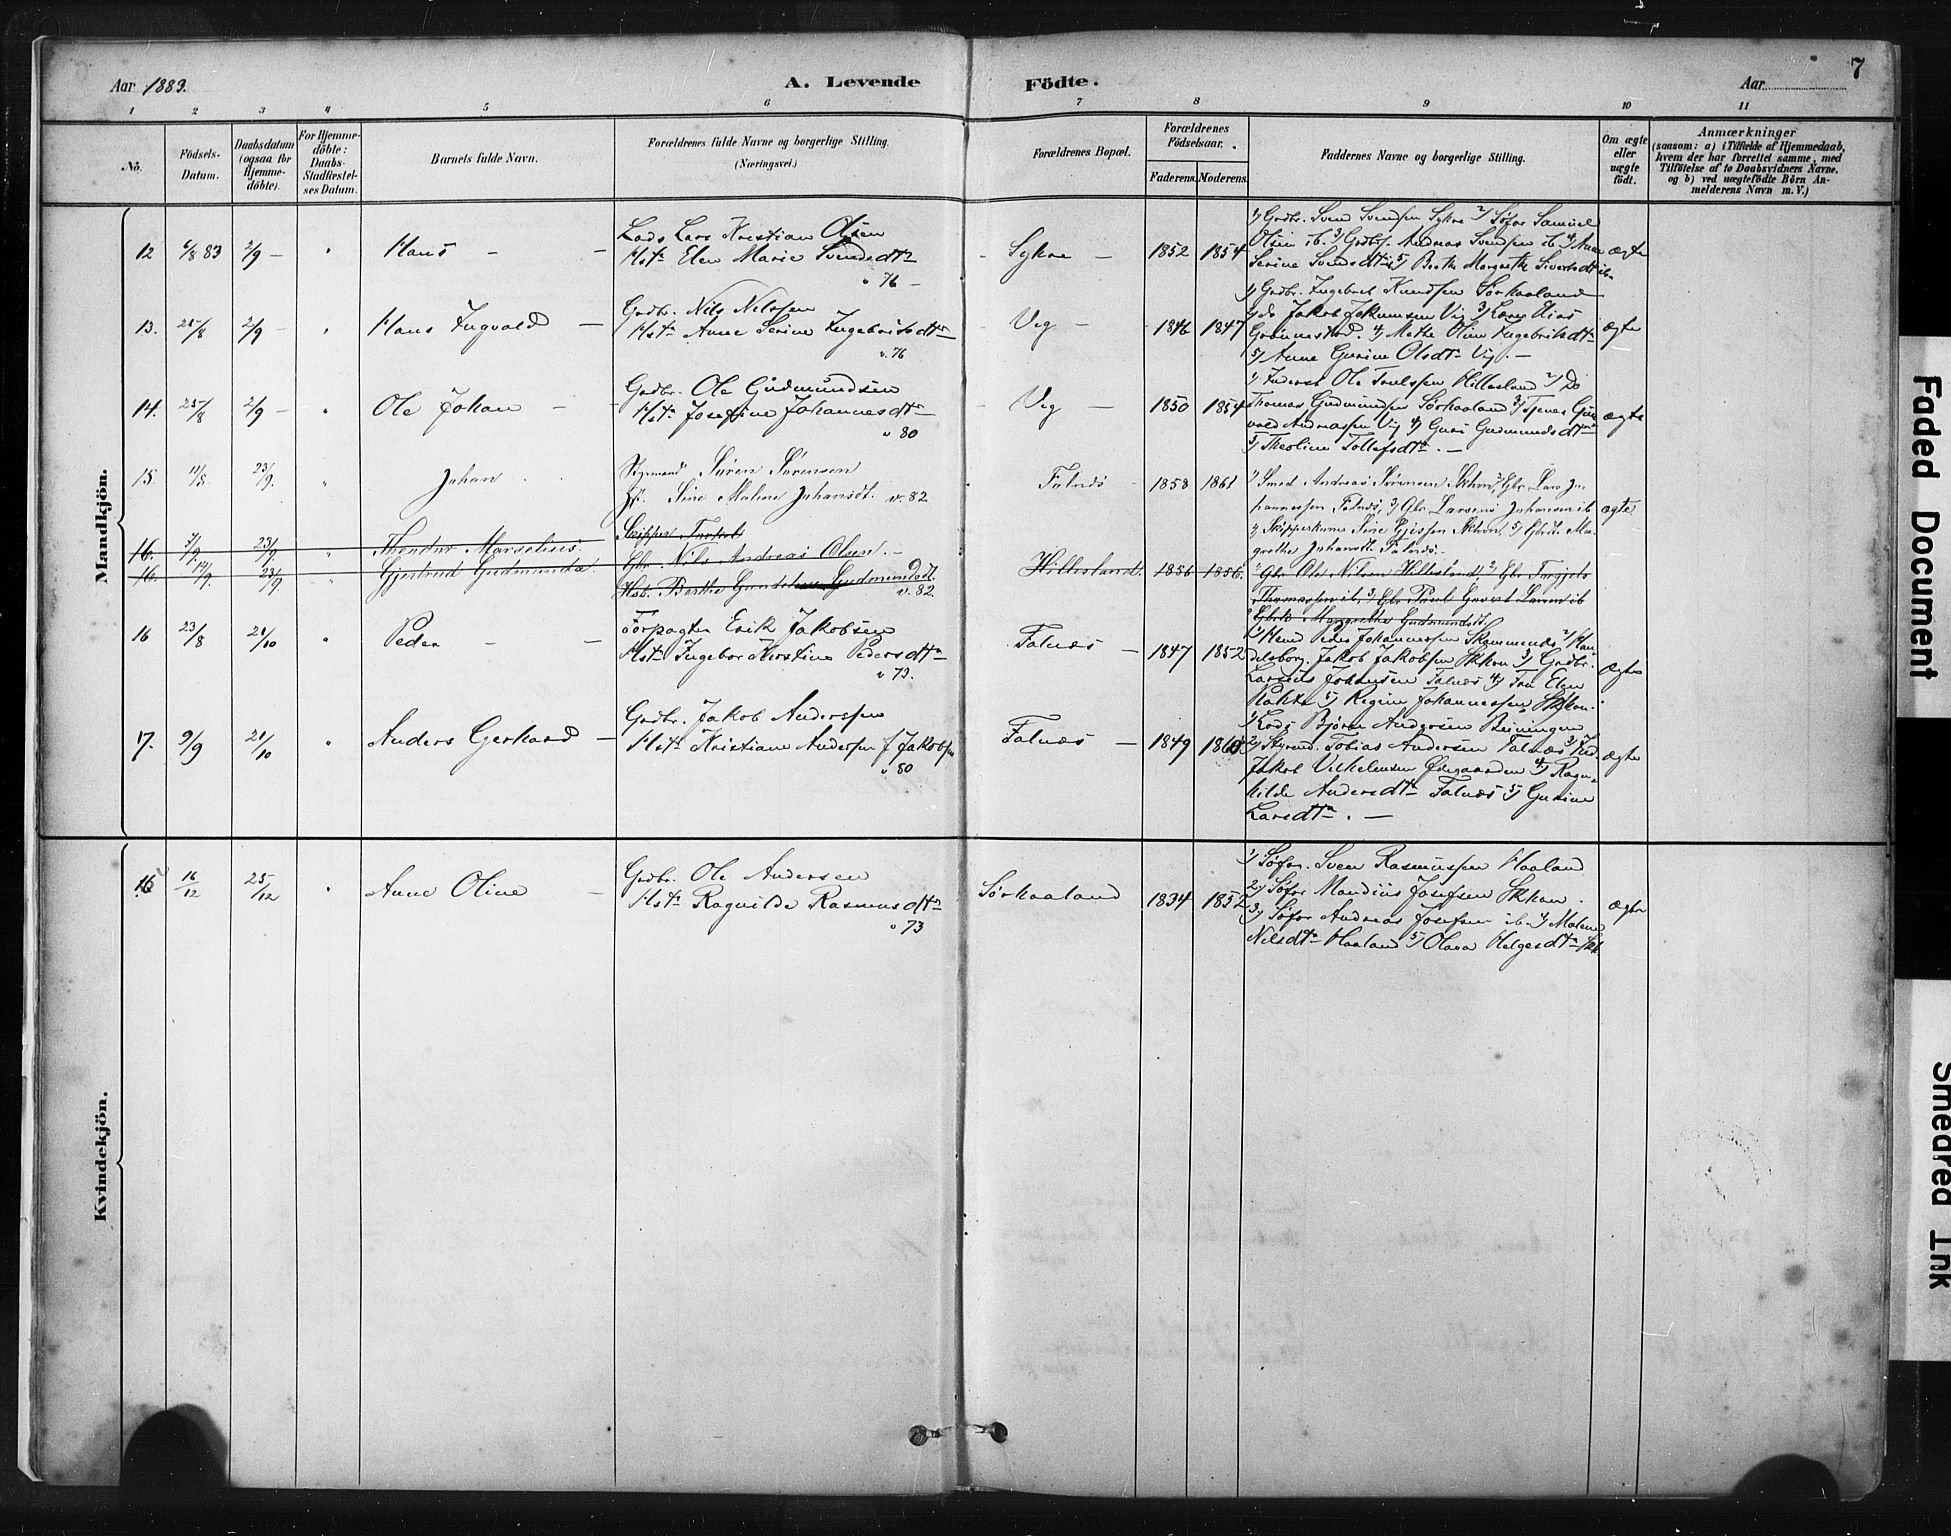 7
Aar 1883.
A. Levende Födte.
Aar
1 2 3 4 5 6 7 8 9 10 11
No.
Födsels-
Datum.
Daabsdatum
(ogsaa for
Hjemme-
døbte).
For Hjemme-
döbte:
Daabs-
Stadfæstel-
ses Datum.
Barnets fulde Navn.
Forældrenes fulde Navne og borgerlige Stilling.
(Næringsvei.)
Forældrenes Bopæl.
Forældrenes
Födselsaar.
Faderens. Moderens.
Faddernes Navne og borgerlige Stilling.
Om ægte
eller
uægte
født.
Anmærkninger
(saasom: a) i Tilfælde af Hjemmedaab,
hvem der har forrettet samme, med
Tilföielse af to Daabsvidners Navne,
og b) ved uægtefödte Börn An-
melderens Navn m. V.)
Mandkjön.
12 6/8 83 2/9 — " Hans — —
Lods Lars Kristian Olsen
Hst. Elen Marie Svendsdtr
" 76 —
Sykre — 1852 1854
1) Grdbr. Svend Svendsen Sykre 2) Søfar. Samuel
Olsen ib. 3) Grdbr. Andreas Svendsen ib 4) Anne
Serine Svendsdtr 5) Berthe Margrethe Sivertsdtr ib.
ægte
13. 2/9 — " Hans Ingvald —
Grdbr. Nils Nilssen
Hst. Anne Serine Ingebrigtsdtr
v. 76
Veg — 1846 1847
1) Grdbr. Ingebret Knudsen Sørhaaland
2) do Jakob Jokumsen Vig 3) Elias
4) Mathe Oline Ingebrigtsdtr
5) Anne Gurine Olsdtr Vig. —
ægte
14. 25/8 2/9 — " Ole Johan —
Grdbr. Ole Gudmundsen
Hst. Josefine Johannesdtr
" 80
Veg — 1850 1854
1) Ole Hillesland 2) Do
Thomas Gudmundsen Sørhaaland 3) Tjener
Andreassen Vig 4) Guri Gudmundsdtr
5) Theoline Tollefsdtr. —
ægte
15. 11/8. 23/9. " Johan.
Styrmand Søren Sørensen
Hst. Sine Malene Johansdt. v. 82
Falnæs 1858 1861
1) Smed Andreas Sørensen 2) Gbr Lars Jo-
hannessen Falnæs, 3) Gbr Larsens Johansen ib
grethe Johansdt. Falnæs.
ægte
16. 3/9 23/9 " Theodor Marselius.
Skipper
16. 14/9 23/9 " Gjertrud Gudmunda.
Gbr. Nils Andreas Olsen. —
Hst. Berthe Gudmundsdt.
v. 82.
Hillesland. 1856 1856.
1) Gbr Ole Nilsen Hillesland, 2) Gbr
Thomassen ib, 3) Gbr Larsen ib
Margrethe Gudmundsdt.
16 23/8 21/10 " Peder — —
Forpagter Erik Jakobsen
Hst. Ingebor Kirstine Pedersdtr
v 73.
Falnæs — 1847 1852
Peder Johannessen 2) Han-
delsborg. Jakob Jakobsen 3) Grdbr.
Larsens Johansen Falnæs 4) Fru Elen
5) Regine Johannessen
ægte
17. 9/9 21/10 " Anders Gerhard —
Grdbr. Jakob Anderssen
Hst. Kristiane Andersen f. Jakobsen
" 80
Falnæs — 1849 1860
1) Lods Bjørn Andersen Beiningen
2) Styrmd. Tobias Andersen Falnæs 3)
Jakob Vilhelmsen Østgaarden 4) Ragn-
hilde Andersdtr Falnæs 5) Gurine
Larsdtr. —
ægte
Kvindekjön.
15 16/12 25/12 " Anne Oline —
Grdbr. Ole Andersen
Hst. Ragnilde Rasmusdtr
" 73
Sørhaaland 1834 1852
1) Søfar. Sven Rasmussen Haaland
2) Søfar Mandius Josefsen
3) Søfar Andreas Josefsen ib. 4) Malene
Nilsdtr Haaland 5) Olava Helgesdtr
ægte
Faded Document
Smeared Ink